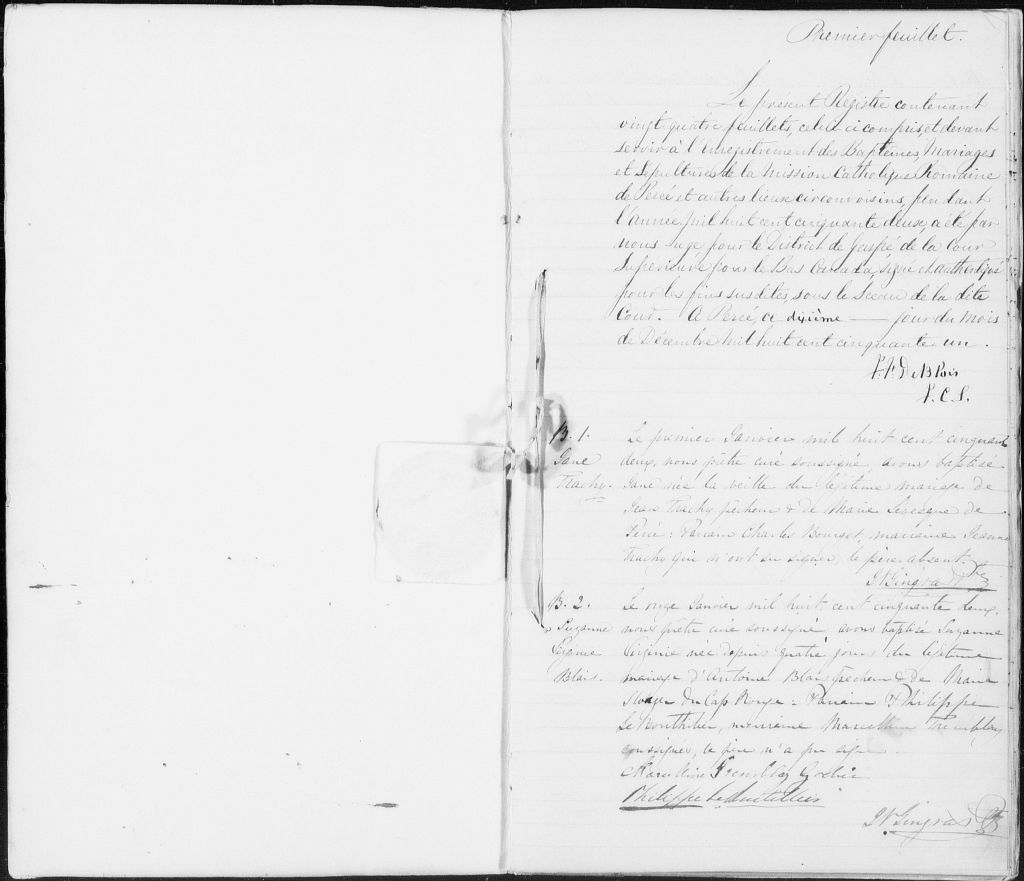 Premier feuillet.
Le présent Registre contenant
vingt quatre feuillets, celui ci compris, et devant
servir à l'enregistrement des Baptêmes, Mariages
et Sépultures de la mission Catholique Romaine
de Percé et autres lieux circonvoisins, pendant
l'année mil huit cent cinquante deux, a été par
nous Juge pour le District de Gaspé de la Cour
Supérieure pour le Bas Canada, signé et authentiqué
pour les fins susdites, sous le Sceau de la dite
Cour. A Percé, ce dixième — jour du mois
de Décembre mil huit cent cinquante un.
DeBlois
J.C.S.
B. 1.
Jane
Trachy.
Le premier Janvier mil huit cent cinquante
deux, nous prêtre curé soussigné, avons baptisé
Jane née la veille du légitime mariage de
Jean Trachy pêcheur & de Marie Levesque de
Percé: Parrain Charles Bourget, marraine Jeanne
Trachy qui n'ont su signer, le père absent.
J N Gingras Ptre
B. 2.
Suzanne
Virginie
Blais.
Le onze Janvier mil huit cent cinquante deux,
nous prêtre curé soussigné, avons baptisé Suzanne
Virginie née depuis quatre jours du légitime
mariage d'Antoine Blais pêcheur & de Marie
du Cap Rouge: Parrain Philippe
Le Bouthillier, marraine Marcelline Tremblay
soussignés, le père n'a pu signer.
Marcelline Tremblay
Philippe LeBouthillier
J N Gingras Ptre